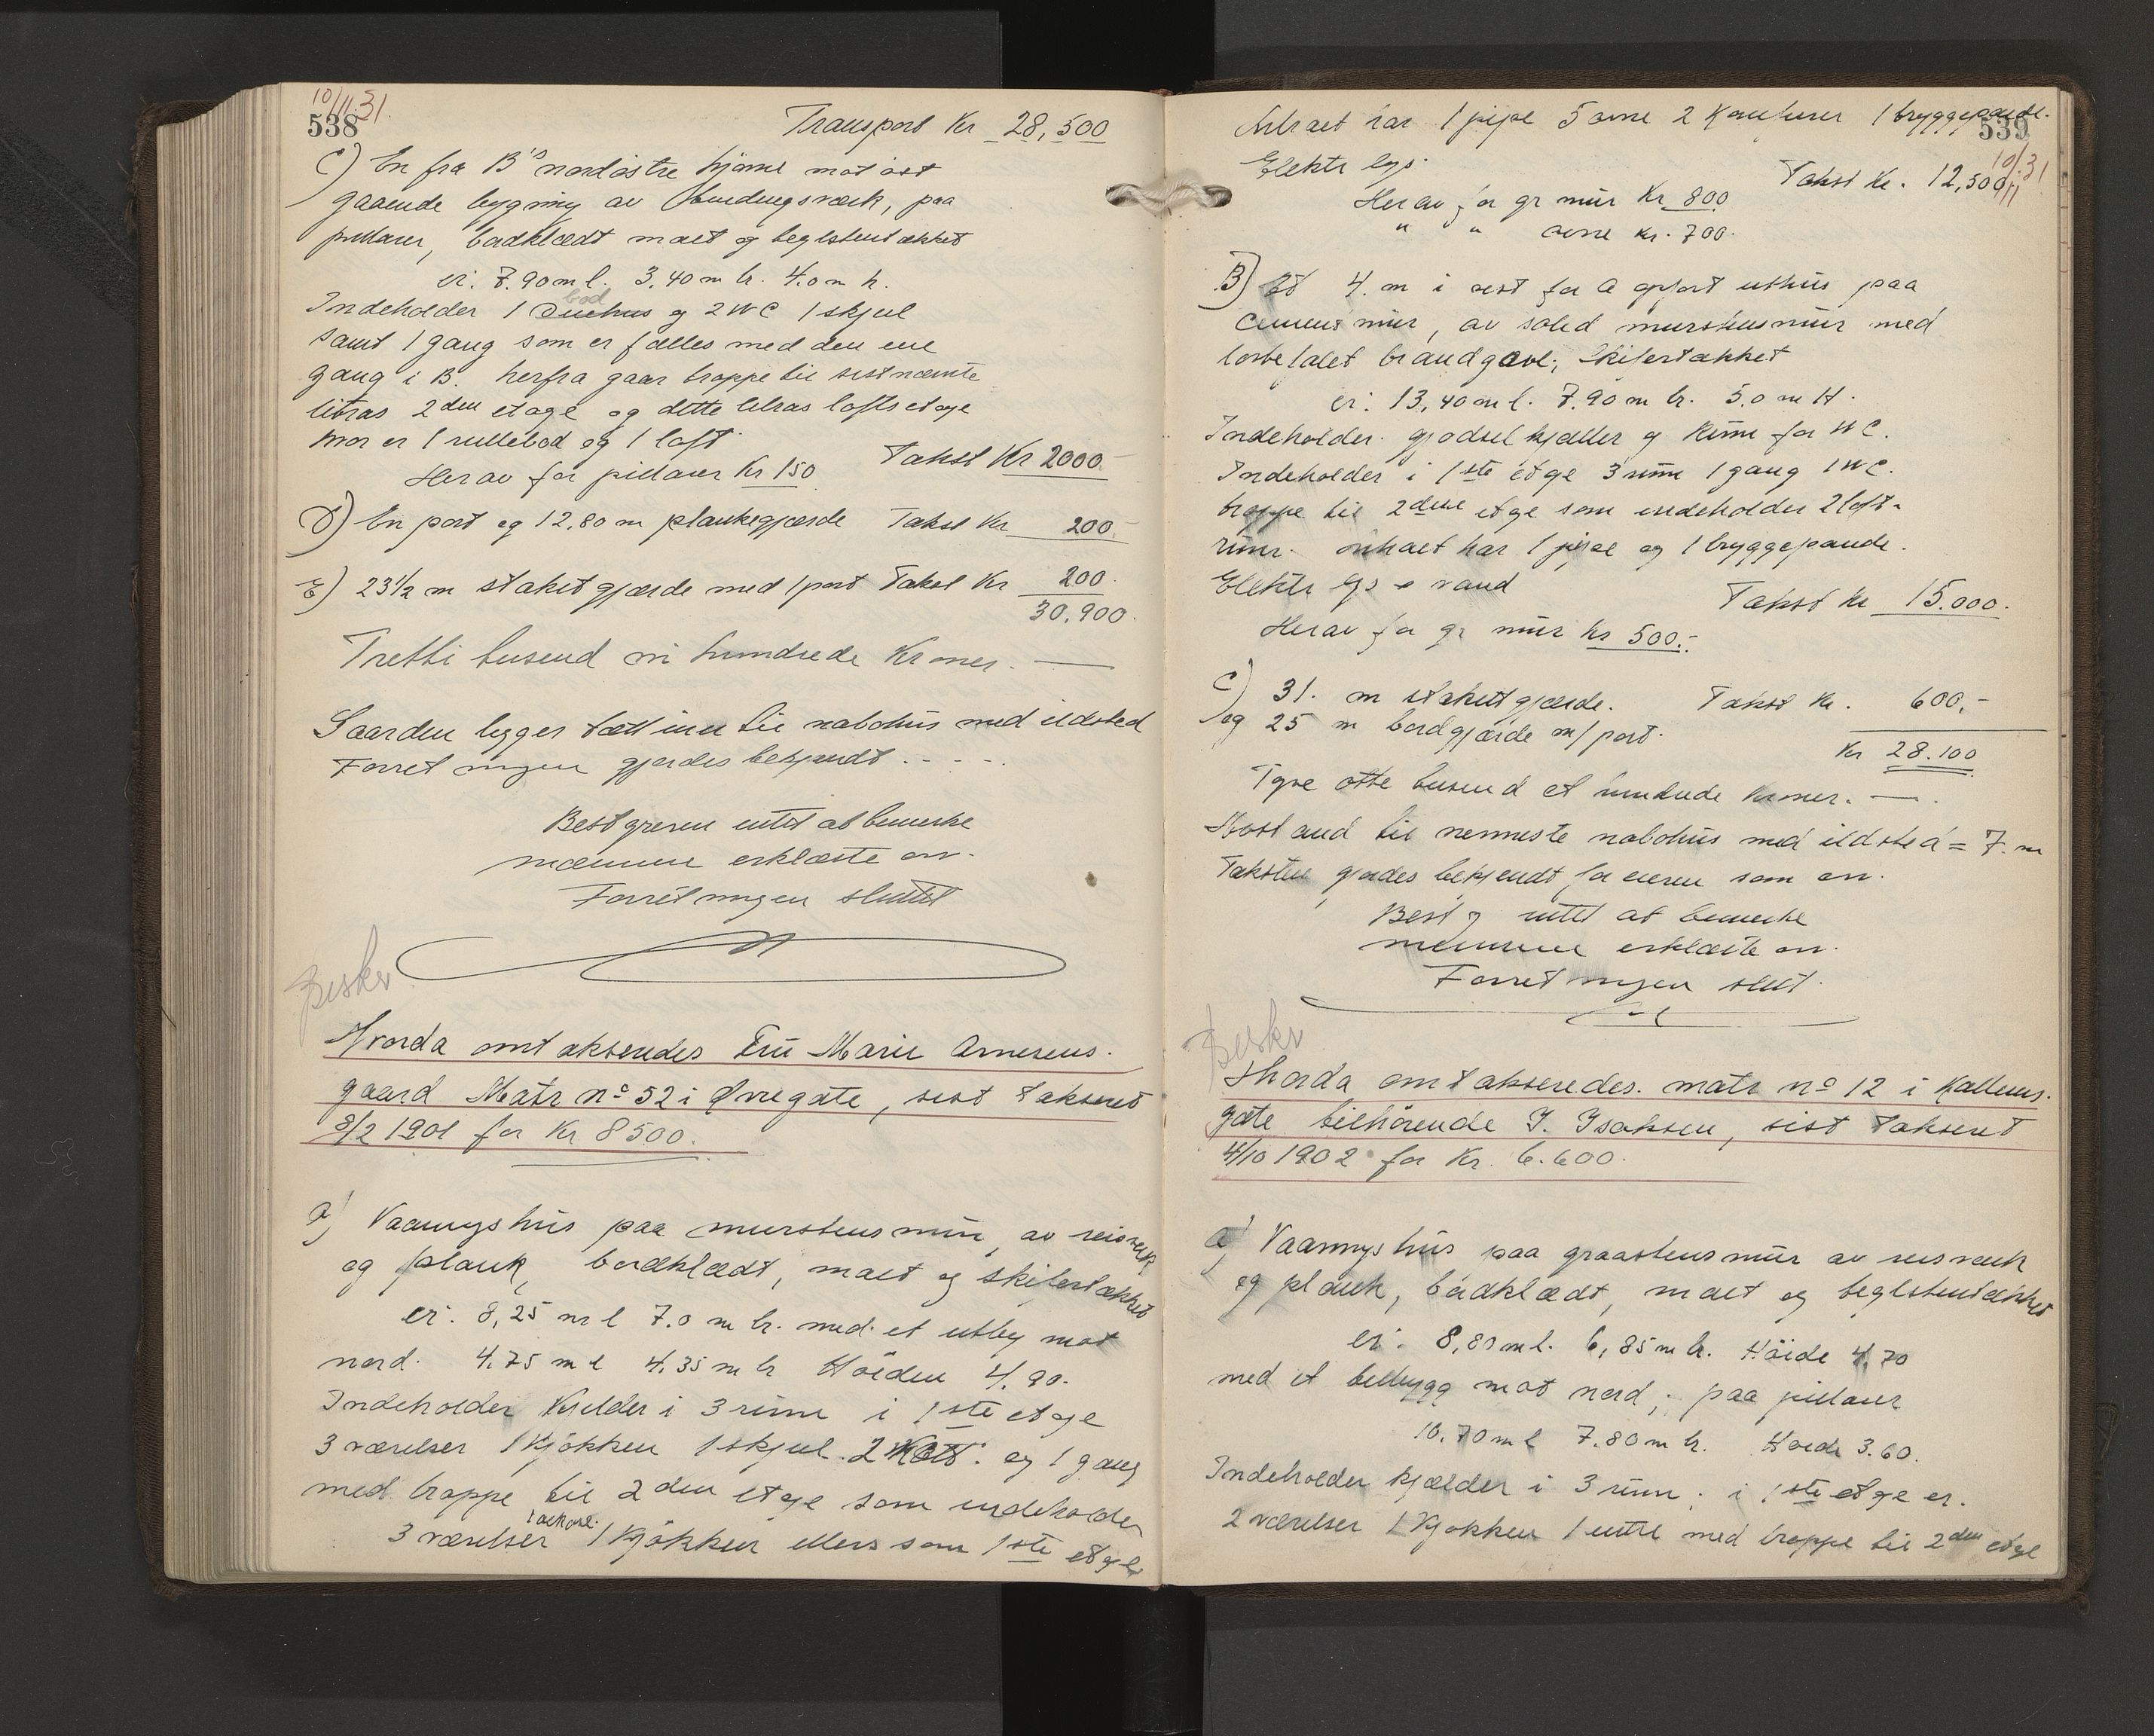 10/11.31.
538
Transport Kr 28,500
C) En fra B's nordøstre hjørne mot øst
gaaende bygning av bindingsværk, paa
pillarer, bordklædt malt og teglstentækket
er: 7.90 m l. 3,40 m br. 4.0 m h.
bod
Indeholder 1 duehus og 2 WC 1 skjul
samt 1 gang som er fælles med den ene
gang i B. herfra gaar trappe til sistnæmte
litras 2den etage og dette litras loftsetage
hvor er 1 rullebod og 1 loft.
Takst Kr 2000.-
Herav for pillarer Kr 150
D) En port og 12.80 m plankegjærde Takst Kr 200.-
E) 23 1/2 m stakitgjærde med 1 port Takst Kr 200.
30,900.
Tretti tusend ni hundrede Kroner. —
Gaarden ligger tætt inn til nabohus med ildsted
Forretningen gjordes bekjendt . - - - .
Best greren intet at bemerke
mænnene erklærte ov.
Forretningen sluttet
Beskr
Hvorda omtakseredes Fru Marie Arnesens
gaard Matr no 52 i Øvregate, sist takseret
8/2 1901 for Kr 8500.
a) Vaaningshus paa murstensmur, av reisverk
og plank, bordklædt, malt og skifertækket
er: 8,25 m l 7.0 m br. med et utbyg mot
nord. 4.75 m l 4,35 m br Höiden 4,90.
Indeholder Kjelder i 3 rum i 1ste etage
3 værelser 1 Kjökken 1 skjul 2 Kott. og 1 gang
med trappe til 2den etage som indeholder
3 værelser 1 Kjökken ellers som 1ste etage
Litraet har 1 pipe 5 ovne 2 Komfurer 1 bryggepande.
539
10/11 31
Elektr lys.
Takst Kr. 12,500
Herav for gr mur Kr 800
" " ovne Kr. 700.
B) Et 4. m i vest for A opført uthus paa
cementmur, av soled murstensmur med
lovbefalet brandgavl, skifertækket
er: 13,40 m l. 7.90 m br. 5.0 m H.
Indeholder gjødselkjælder og Kum for WC.
Indeholder i 1ste etge 3 rum 1 gang 1 WC.
trappe til 2den etge som indeholder 2 loft-
rum. huset har 1 pipe og 1 bryggepande.
Elektr lys o vand
Takst Kr 15.000.
Herav for gr mur Kr 500.-
C) 31. m stakitgjærde. Takst Kr. 600,-
og 25 m bordgjærde m/ port.
Kr 28.100
Tyve otte tusend et hundrede kroner. — .
Avstand til nermeste nabohus med ildsted = 7. m
Taksten gjordes bekjendt for eieren som ov.
Best g intet at bemerke
mennene erklærte ov.
Forretningen slut.
Beskr
Hvorda omtakseredes. matr no 12 i Kallums.
gate tilhörende J. Isaksen, sist takseret
4/10 1902 for Kr. 6.600.
a) Vaaningshus paa graastensmur av reisverk
og plank, bordklædt, malt og teglstentækket
er: 8,80 m l. 6,85 m br. Höide 4,70
med et tilbygg mot nord, paa pillarer
10.70 m l 7.80 m br. Høide 3.60.
Indeholder kjælder i 3 rum; i 1ste etge er.
2 værelser 1 Kjøkken 1 entre med trappe til 2den etge